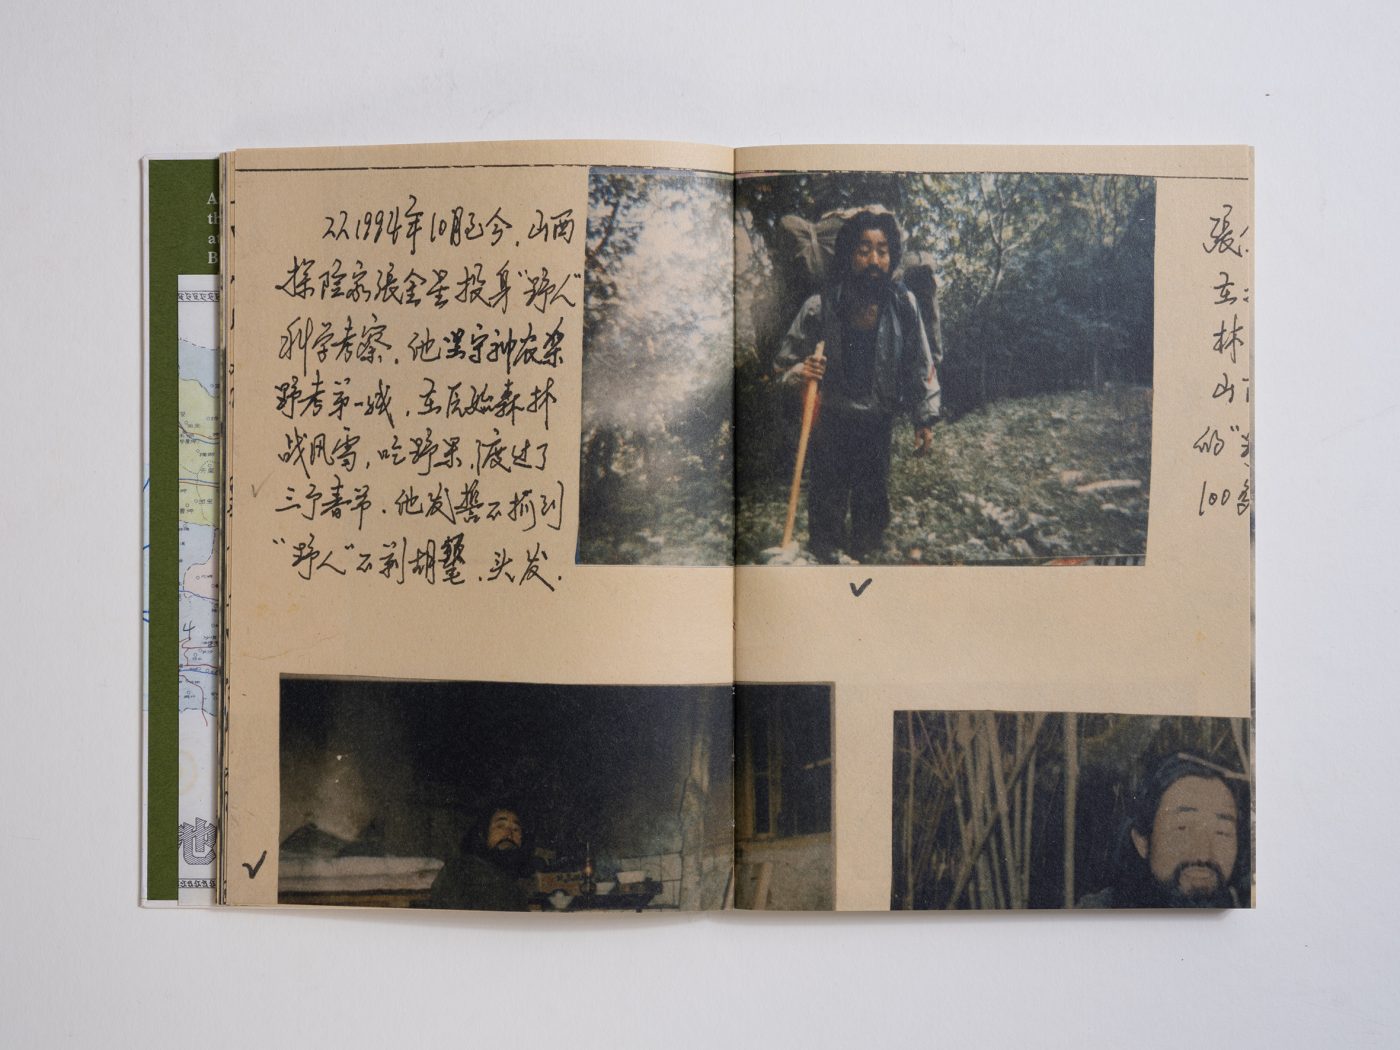 从1994年10月至今，山西
探险家張金星投身“野人”
科学考察．他坚守神农架
野考第一线，在原始森林
战风雪，吃野果，渡过了
三个春节．他发誓不抓到
“野人”不剃胡鬚、头发．
張
在
林
山
的“
100多
池